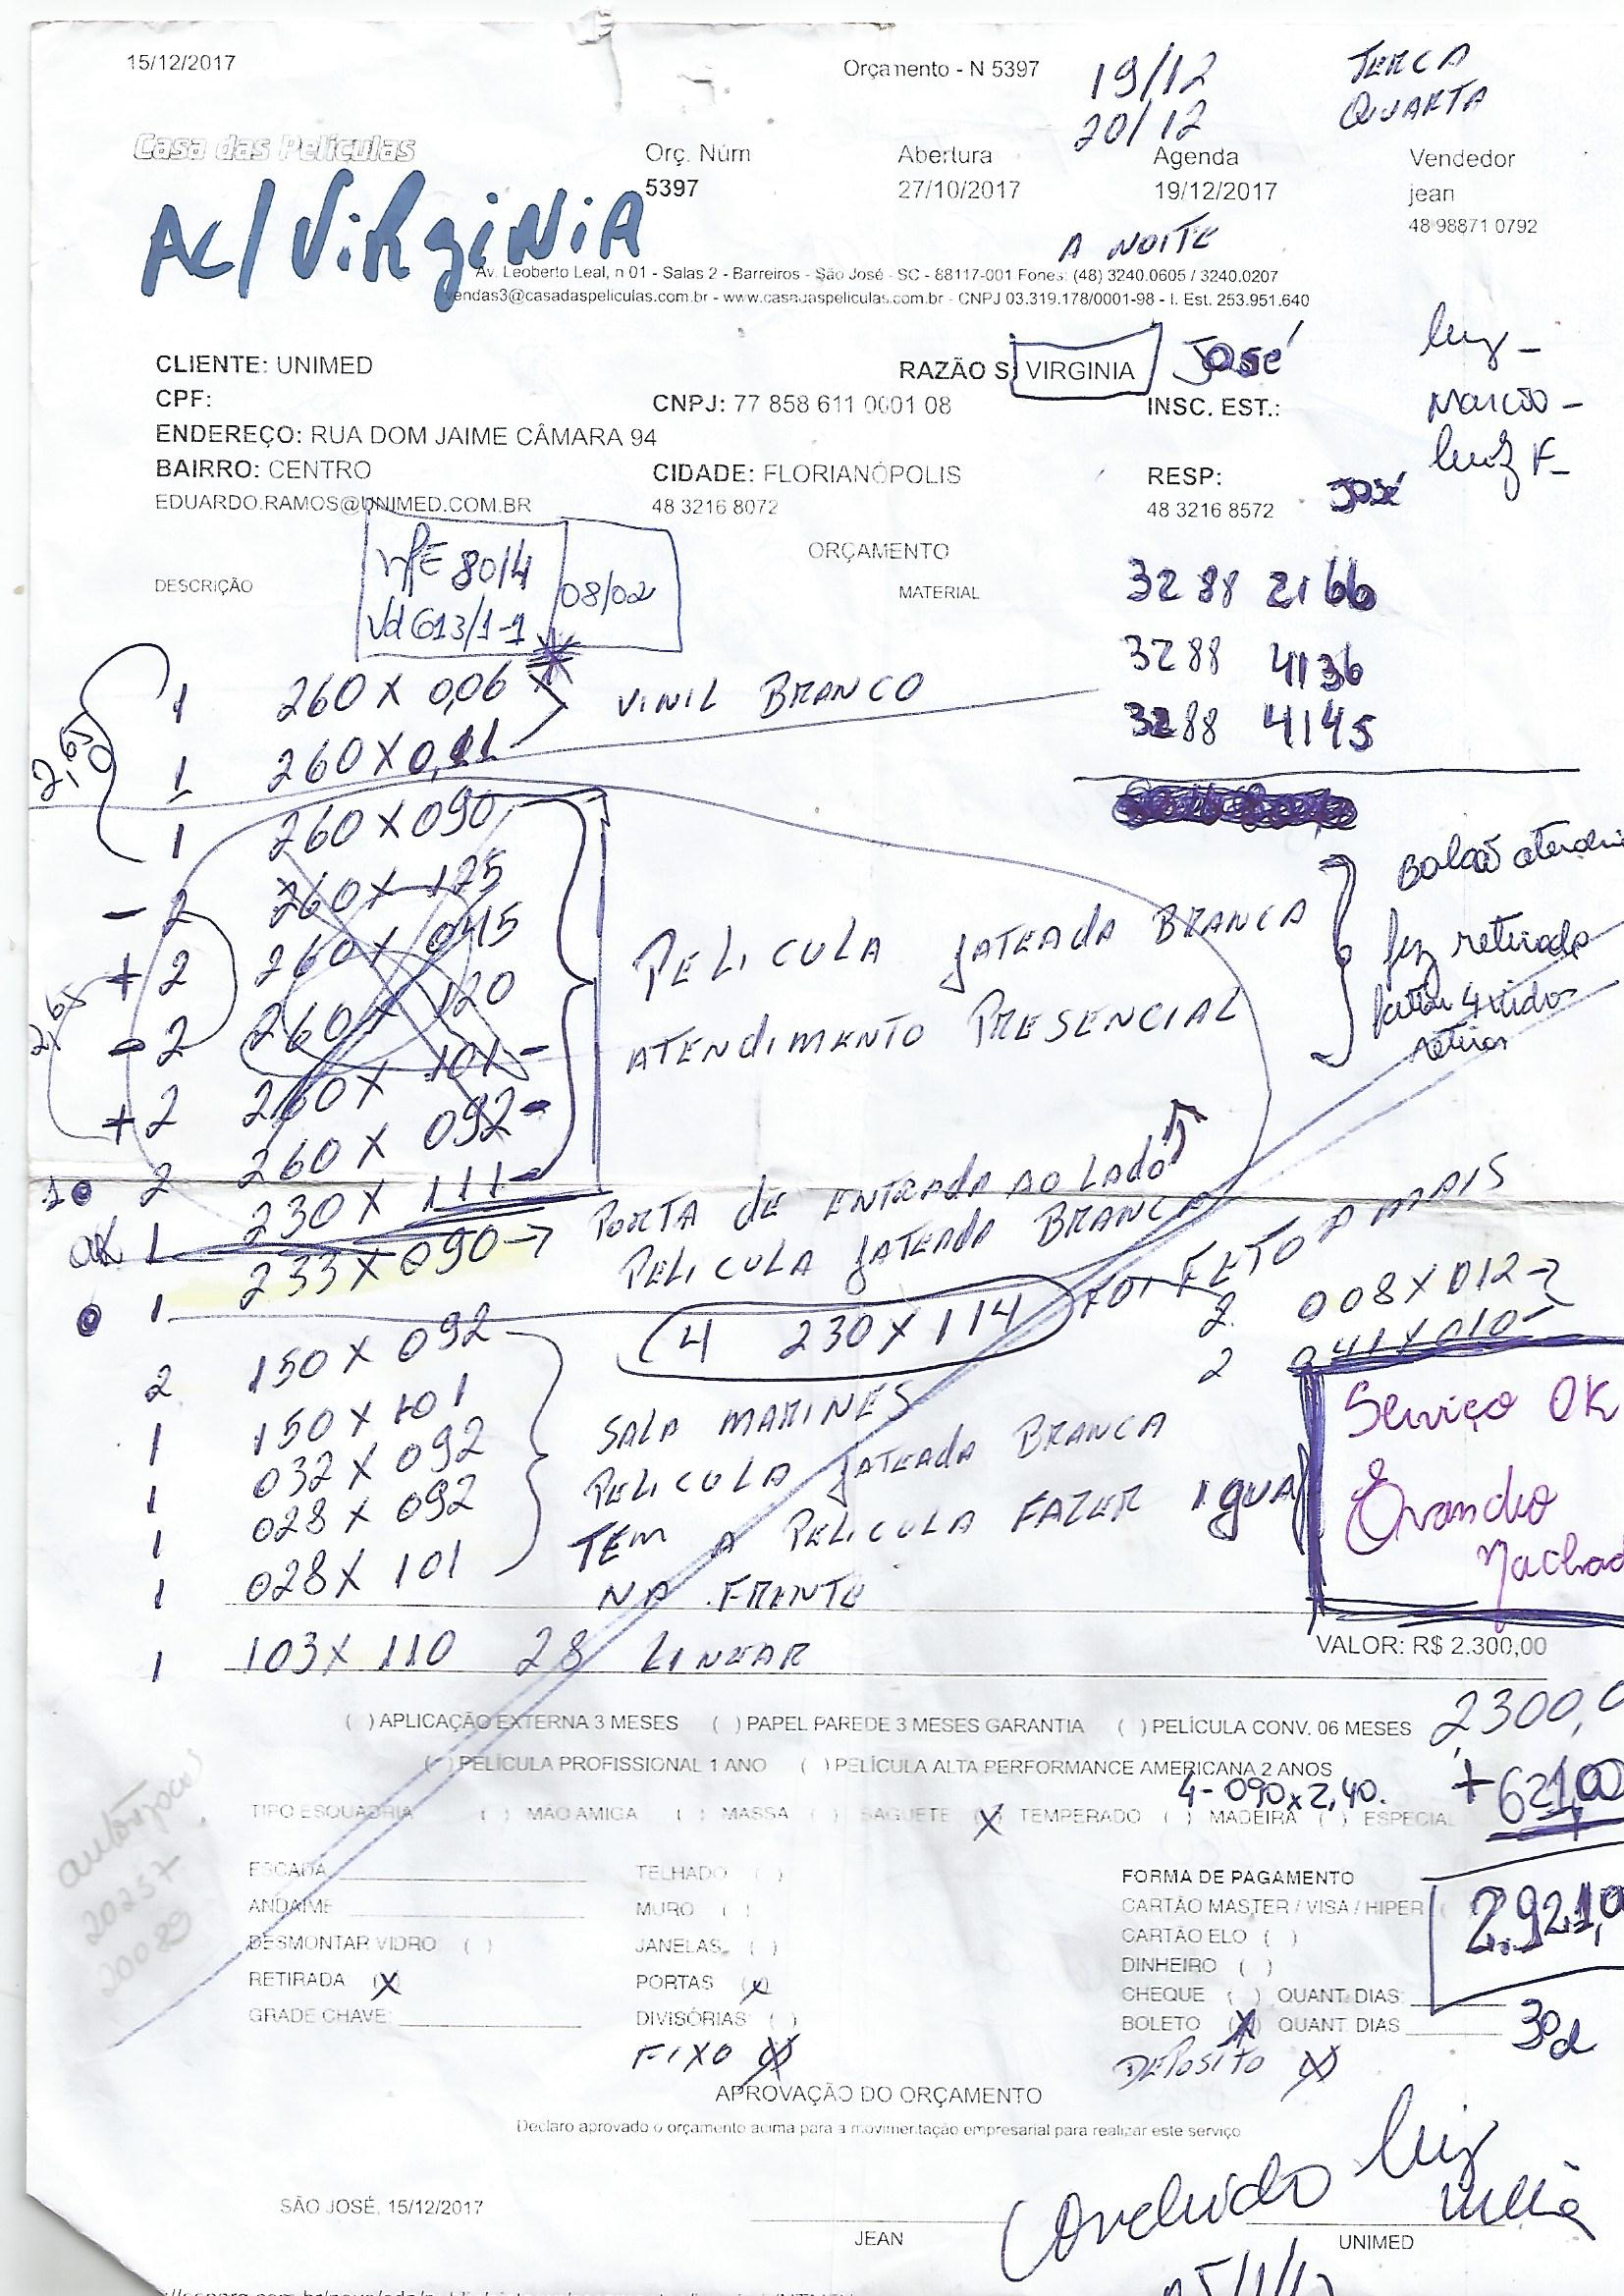 15/12/2017
Orçamento - N 5397
19/12 TERCA
20/12 QUARTA
Casa das Películas
Orç. Núm Abertura Agenda Vendedor
5397 27/10/2017 19/12/2017 jean
48 98871 0792
AC/ViRgiNiA
A NOITE
Av. Leoberto Leal, n 01 - Salas 2 - Barreiros - São José - SC - 88117-001 Fones: (48) 3240.0605 / 3240.0207
vendas3@casadaspeliculas.com.br - www.casadaspeliculas.com.br - CNPJ 03.319.178/0001-98 - I. Est. 253.951.640
CLIENTE: UNIMED RAZÃO S VIRGINIA JOSÉ
luiz -
CPF: CNPJ: 77 858 611 0001 08 INSC. EST.:
Marcio -
ENDEREÇO: RUA DOM JAIME CÂMARA 94
luiz F-
BAIRRO: CENTRO CIDADE: FLORIANÓPOLIS RESP:
EDUARDO.RAMOS@UNIMED.COM.BR 48 3216 8072 48 3216 8572 JOSÉ
ORÇAMENTO
DESCRIÇÃO MATERIAL
NfE 8014 08/02
Vd 613/1-1
3288 2166
3288 4136
3288 4145
1 260 X 0,06
VINIL BRANCO
1 260 X 0,11
2,65
1 260 X 090
- 2 260 X 125
+ 2 260 X 045
- 2 260 X 120
+ 2 260 X 101 -
2 260 X 092 -
2,65
PELICULA JATEADA BRANCA
ATENDIMENTO PRESENCIAL
fez retirada
retirar
OK 1 230 X 111 -
1 233 X 090 → PORTA DE ENTRADA AO LADO
PELICULA JATEADA BRANCA
4 230 X 114 FOI FETO A MAIS
2 008 X 012
2 041 X 010
2 150 X 092
1 150 X 101
1 032 X 092
1 028 X 092
1 028 X 101
SALA MARINES
PELICULA JATEADA BRANCA
TEM A PELICULA FAZER IGUAL
NA FRENTE
Serviço OK
Evandro
Machad
1 103 X 110 28 LINEAR
VALOR: R$ 2.300,00
( ) APLICAÇÃO EXTERNA 3 MESES ( ) PAPEL PAREDE 3 MESES GARANTIA ( ) PELÍCULA CONV. 06 MESES
2300,0
( ) PELÍCULA PROFISSIONAL 1 ANO ( ) PELÍCULA ALTA PERFORMANCE AMERICANA 2 ANOS
4- 090 x 2,40.
+ 621,00
TIPO ESQUADRIA ( ) MÃO AMIGA ( ) MASSA ( ) BAGUETE (X) TEMPERADO ( ) MADEIRA ( ) ESPECIAL
2.921,0
20237
20089
ESCADA TELHADO ( ) FORMA DE PAGAMENTO
ANDAIME MURO ( ) CARTÃO MASTER / VISA / HIPER
DESMONTAR VIDRO ( ) JANELAS ( ) CARTÃO ELO ( )
DINHEIRO ( )
RETIRADA (X) PORTAS (X)
CHEQUE ( ) QUANT. DIAS:
GRADE CHAVE: DIVISÓRIAS ( )
BOLETO (X) QUANT. DIAS 30d
FIXO (X)
DEPOSITO (X)
APROVAÇÃO DO ORÇAMENTO
Declaro aprovado o orçamento acima para a movimentação empresarial para realizar este serviço
Concluido Luiz
SÃO JOSÉ, 15/12/2017
JEAN UNIMED